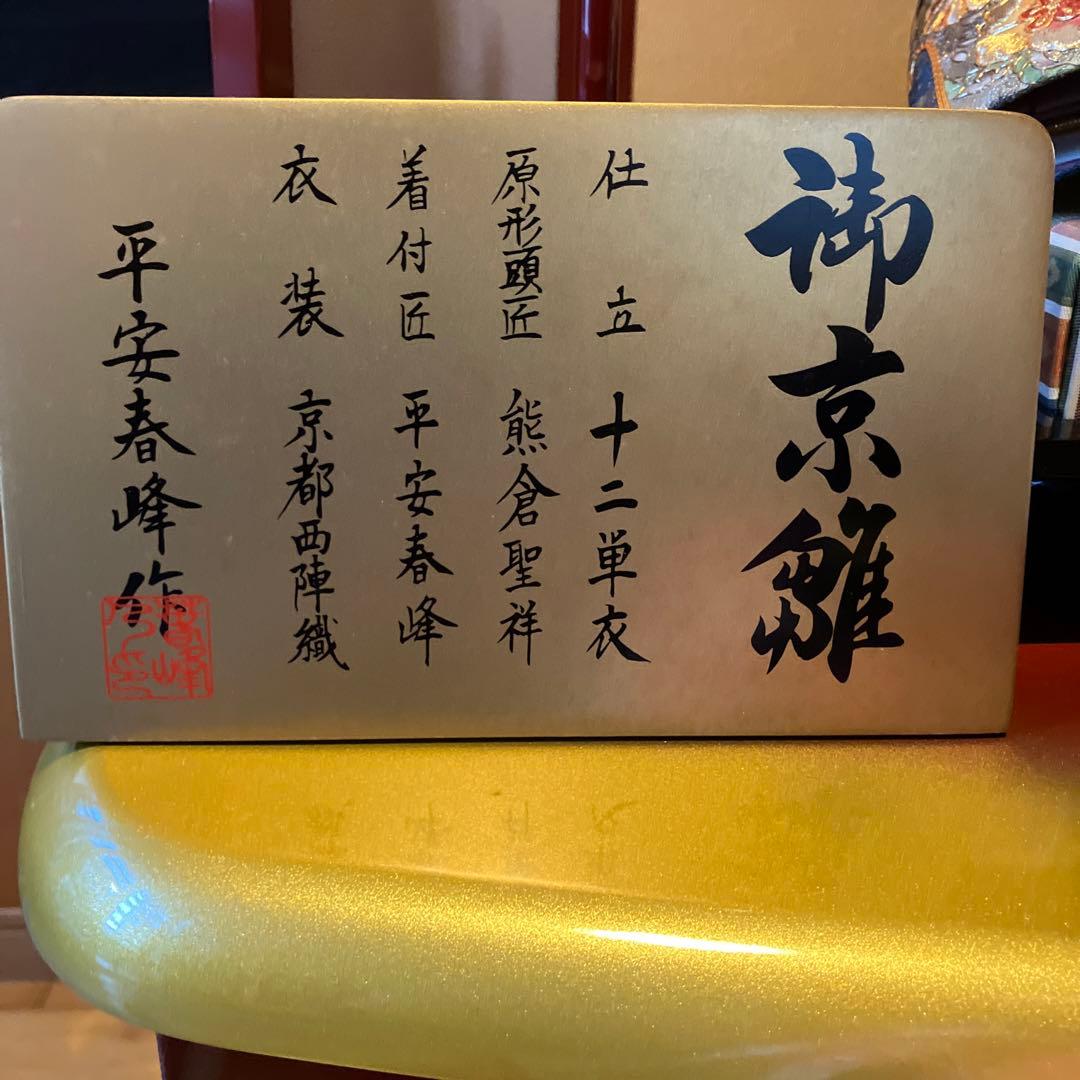 御京雛
仕立 十二単衣
原形頭匠 熊倉聖祥
着付匠 平安春峰
衣装 京都西陣織
平安春峰作